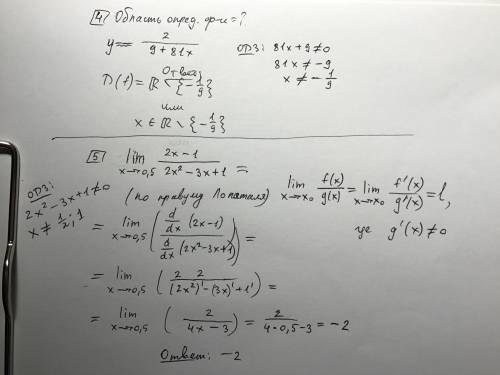 4 Область опред. ф-и = ?
y = 2 / (9 + 81x)
ОДЗ: 81x + 9 ≠ 0
81x ≠ -9
x ≠ -1/9
Ответ:
D(f) = ℝ \ {-1/9}
или
x ∈ ℝ \ {-1/9}
5 lim x→0,5 (2x - 1) / (2x² - 3x + 1) =
ОДЗ:
2x² - 3x + 1 ≠ 0
x ≠ 1/2; 1
(по правилу Лопиталя) lim x→x₀ f(x)/g(x) = lim x→x₀ f'(x)/g'(x) = l,
где g'(x) ≠ 0
= lim x→0,5 (d/dx (2x-1) / d/dx (2x²-3x+1)) =
= lim x→0,5 (2 / ((2x²)' - (3x)' + 1')) =
= lim x→0,5 (2 / (4x - 3)) = 2 / (4·0,5 - 3) = -2
Ответ: -2